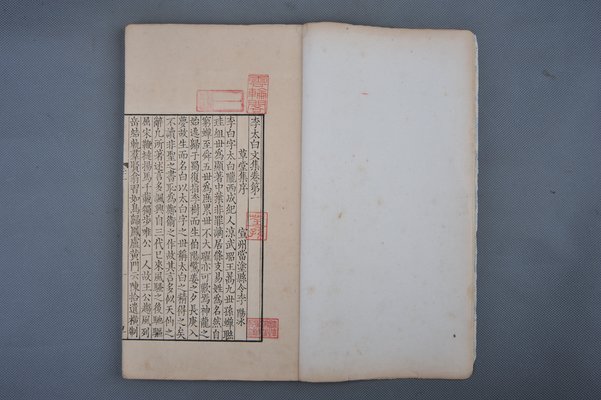 雲輪閣
李太白文集卷第一
草堂集序　宣州當塗縣令李陽冰
李白字太白隴西成紀人涼武昭王暠九世孫蟬聯
珪組世為顯著中葉非罪謫居條支易姓為名然自
窮蟬至舜五世為庶累世不大曜亦可歎焉神龍之
始逃歸于蜀復指李樹而生伯陽驚姜之夕長庚入
夢故生而名白以太白字之世稱太白之精得之矣
不讀非聖之書恥為鄭衛之作故其言多似天仙之
辭凡所著述言多諷興自三代已來風騷之後馳驅
屈宋鞭撻揚馬千載獨步唯公一人故王公趨風列
岳結軌羣賢翕習如鳥歸鳳盧黃門云陳拾遺橫制
荃孫